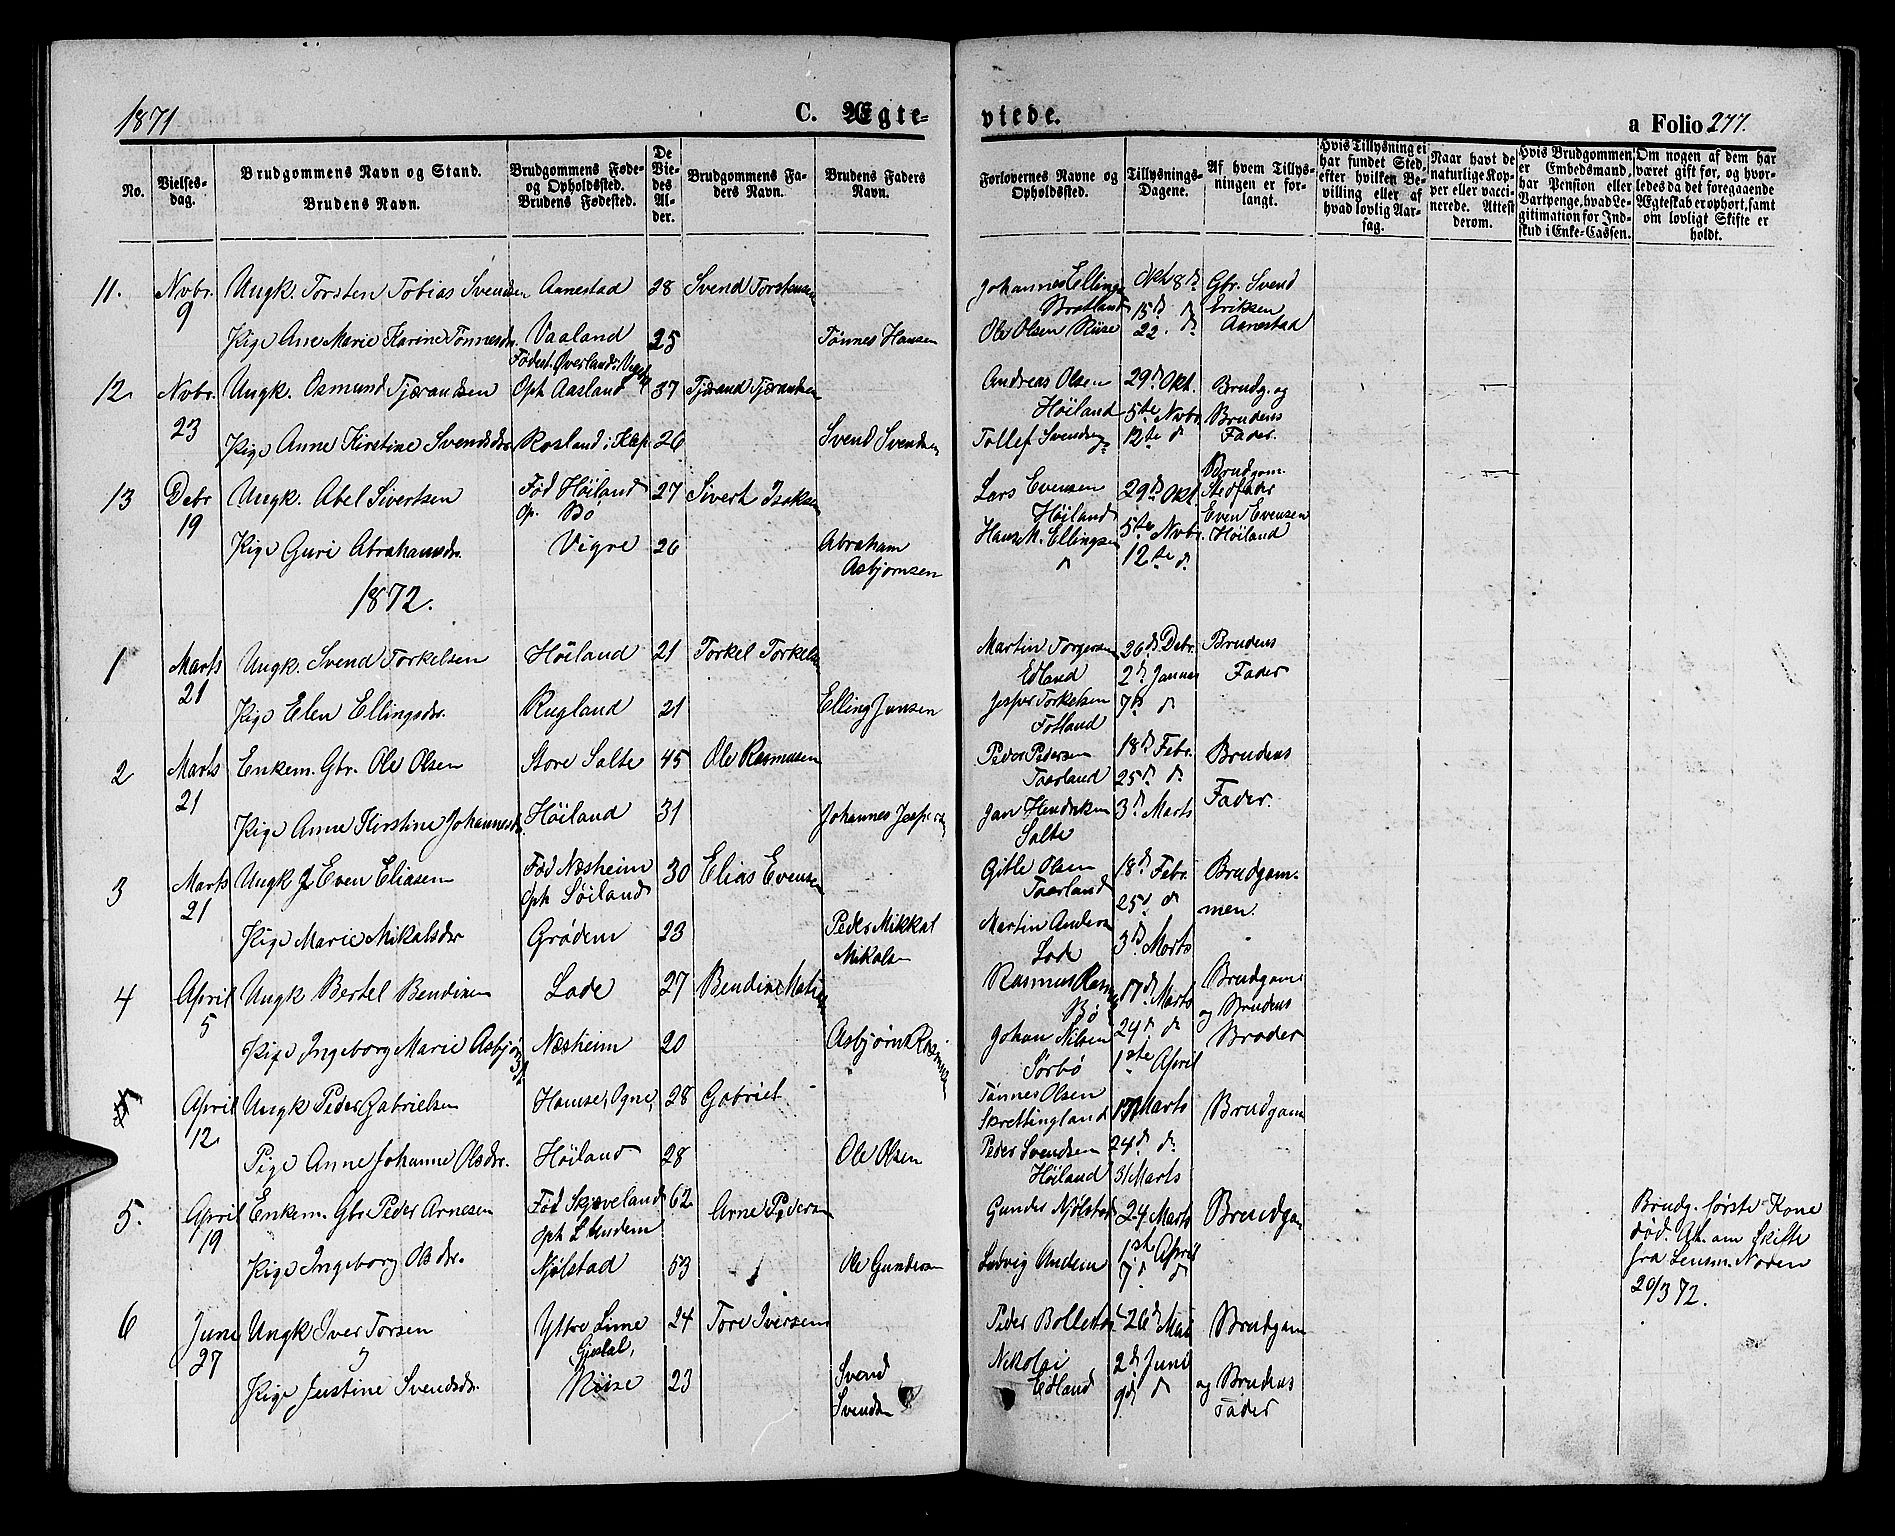 1871
C. Ægte-
viede.
a Folio 277.
No.
Vielses-
dag.
Brudgommens Navn og Stand.
Brudens Navn.
Brudgommens Føde-
og Opholdssted.
Brudens Fødested.
De
Vie-
des
Al-
der.
Brudgommens Fa-
ders Navn.
Brudens Faders
Navn.
Forlovernes Navne og
Opholdssted.
Tillysnings-
Dagene.
Af hvem Tillys-
ningen er for-
langt.
Hvis Tillysning ei
har fundet Sted,
efter hvilken Be-
villing eller af
hvad lovlig Aar-
sag.
Naar havt de
naturlige Kop-
per eller vacci-
nerede. Attest
derom.
Hvis Brudgommen
er Embedsmand,
har Pension eller
Vartpenge, hvad Le-
gitimation for Ind-
skud i Enke-Cassen.
Om nogen af dem har
været gift før, og hvor-
ledes da det foregaaende
Ægteskab er ophørt, samt
om lovligt Skifte er
holdt.
11. Novbr. 9 Ungk. Torsten Tobias Svendsen Aanestad 28 Svend Torstensen
Pige Ane Marie Karine Tønnesdr. Vaaland 25 Tønnes Hansen
Johannes Ellings
Bratland
Ole Olsen Riise
Okt 8d
15d d
22. d
Gbr. Svend
Eriksen
Aanestad
12. Novbr. 23 Ungk. Osmund Tjærandsen Fødest. Øverland i Vigd
Oph Aasland 37 Tjærand Tjærandsen
Pige Anne Kirstine Svendsdr. Rosland i Klep. 26 Svend Svendsen
Andreas Olsen
Høiland
Tollef Svendsen
29d Okt.
5te Novbr
12te d
Brudg. og
Brudens
Fader.
13 Debr 19 Ungk. Abel Sivertsen Fød Høiland
Op. Bø 27 Sivert Isaksen
Pige Guri Abrahamsdr. Vigre 26 Abraham
Asbjørnsen
Lars Evensen
Høiland
Hans M. Ellingsen
d
29d Okt
5te Novbr.
12te d.
Brudgom.
Stedfader
Even Evensen
Høiland
1872.
1 Marts 21 Ungk. Svend Torkelsen Høiland 21 Torkel Torkelsen
Pige Elen Ellingsdr. Rugland 21 Elling Jensen
Martin Torgersen
Edland
Jesper Torkelsen
Fotland
26d Debr.
2d Januar
7d d
Brudens
Fader
2 Marts 21 Enkem. Gbr. Ole Olsen Store Salte 45 Ole Rasmusen
Pige Anne Kirstine Johannesdr Høiland 31 Johannes Jespersen
Peder Pedersen
Taarland
Jan Hendriksen
Salte
18d Febr.
25d d
3d Marts
Brudens
Fader.
3 Marts 21 Ungk Even Eliasen Fød Næsheim
Oph Søiland 30 Elias Evensen
Pige Marie Mikalsdr Grødem 23 Peder Mikkal
Mikalsen
Gitle Olsen
Taarland
Martin Anders
Lode
18d Febr
25d d
3d Marts
Brudgom-
men.
4 April 5 Ungk Bertel Bendixen Lode 27 Bendix
Pige Ingeborg Marie Asbjørnsdr Næsheim 20 Asbjørn Rasmusen
Rasmus Rasm
Bø
Johan Nilsen
Sørbø
17d Marts
24d d
1ste April
Brudgom
og Brudens
Broder
April 12 Ungk Peder Gabrielsen Ogne, 28 Gabriel
Pige Anne Johanne Olsdr. Høiland 28 Ole Olsen
Tønnes Olsen
Skrettingland
Peder Svendsen
Høiland
17d Marts
24d d
31 Marts
Brudgom
5. April 19 Enkem. Gbr Peder Arnesen Fød Skjæveland
Oph L Undem 62 Arne Pedersen
Pige Ingeborg Olsdr. Njølstad 53 Ole Gundersen
Gunder Njølstad
Ludvig Undem
24 Marts
1st April
7d d
Brudgom
Brudg. første Kone
død. At. om Skifte
fra Lensm. Noren
20/3 72.
6 June 27 Ungk Iver Torsen Yttre Lime
Gjesdal, 24 Tore Iversen
Pige Justine Svendsdr. Riise 23 Svend
Svendsen
Peder Bollestad
Nikolai
Edland
26d Mai
2d Juni
9d d
Brudgom
og Brudens
Fader